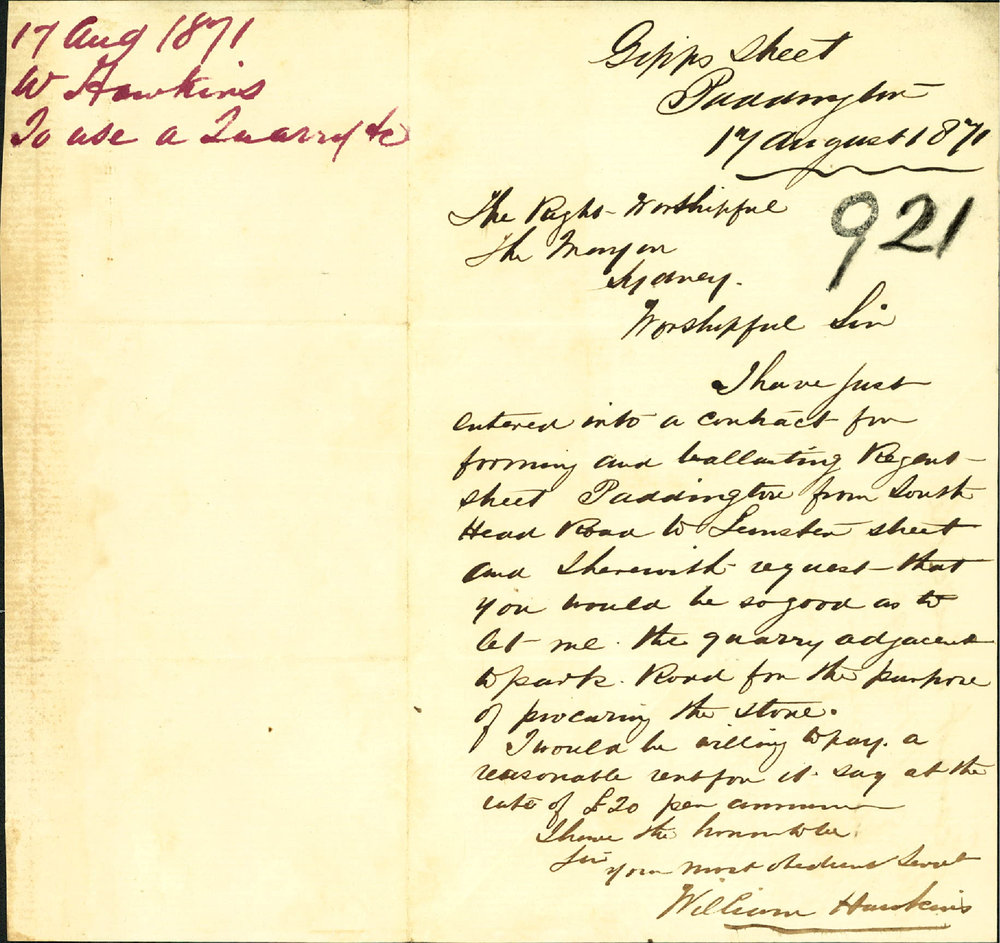 17 Aug 1871
W Hawkins
To use a Quarry &c
Gipps Street
Paddington
17 August 1871
921
The Right Worshipful
The Mayor
Sydney.
Worshipful Sir
I have just
entered into a contract for
forming and ballasting Regent
street Paddington from South
Head Road to Leinster street
and I herewith request that
you would be so good as to
let me the quarry adjacent
to park Road for the purpose
of procuring the stone.
I would be willing to pay a
reasonable rent for it say at the
rate of £20 per annum
I have the honor to be
Sir
your most obedient Servt
William Hawkins